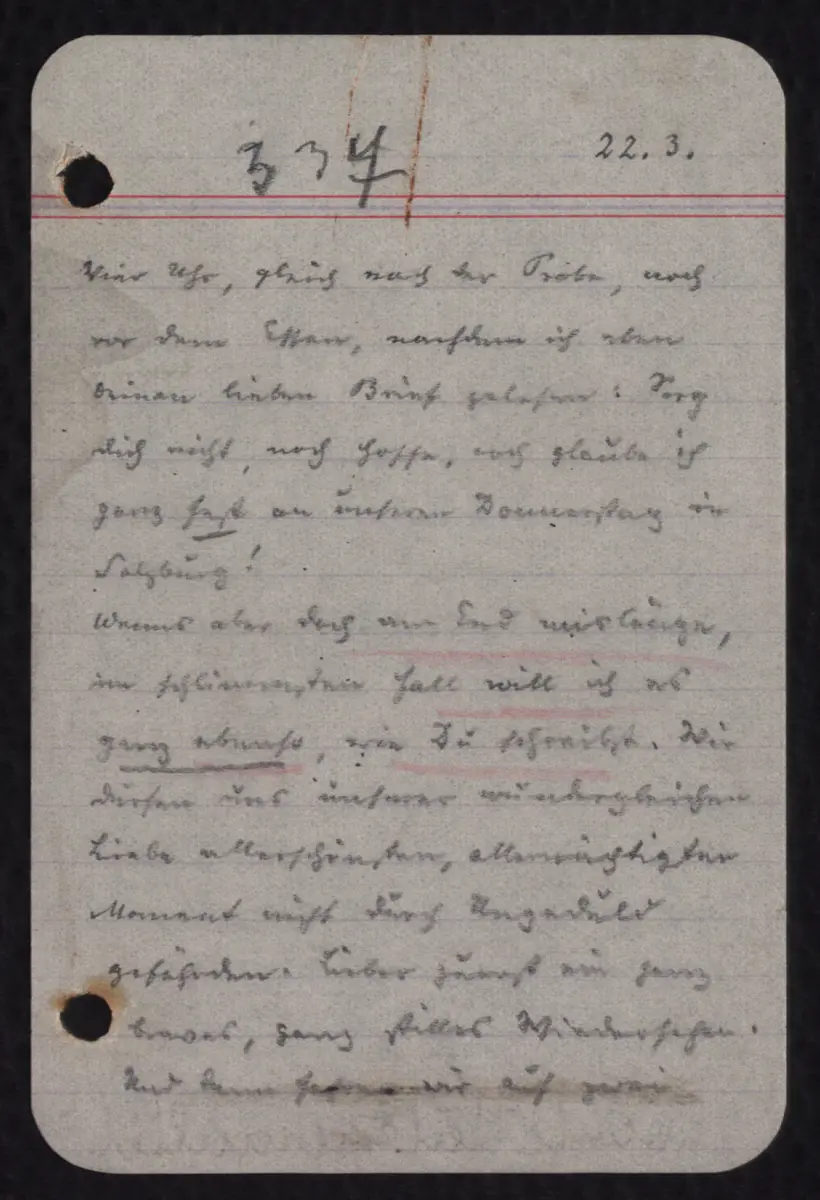 334
22. 3.
Vier Uhr, gleich nach der Probe, noch
vor dem Essen, nachdem ich eben
Deinen lieben Brief gelesen: Sorg
dich nicht, noch hoffe, noch glaube ich
ganz fest an unseren Donnerstag in
Salzburg!
Wenns aber doch am End mislänge,
im schlimmsten Fall will ich es
ganz ebenso, wie Du schreibst. Wir
dürfen uns unserer wundergleichen
Liebe allerschönsten, allermächtigsten
Moment nicht durch Ungeduld
gefährden. Lieber zuerst ein ganz
braves, ganz stilles Wiedersehen.
Und dann fahren wir auf zwei